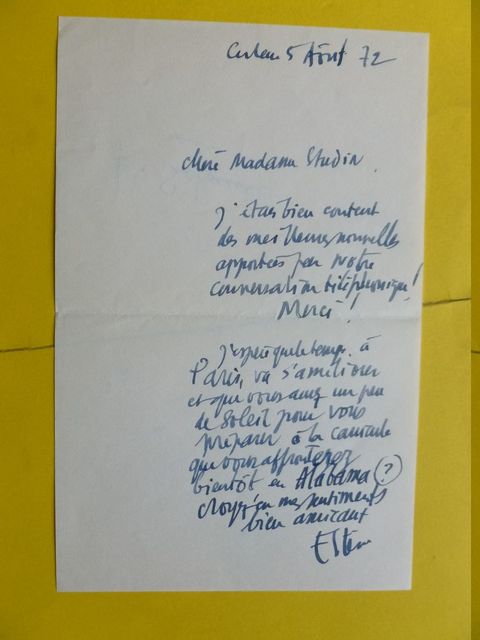 5 Août 72
Chère Madame Studin
j'étais bien content
des meilleures nouvelles
apportées par notre
conversation téléphonique!
Merci!
j'espère que le temps à
Paris, va s'améliorer
et que vous aurez un peu
de soleil pour vous
préparer à la canicule
que vous affronterez
bientôt en Alabama (?)
croyez en mes sentiments
bien amicaux